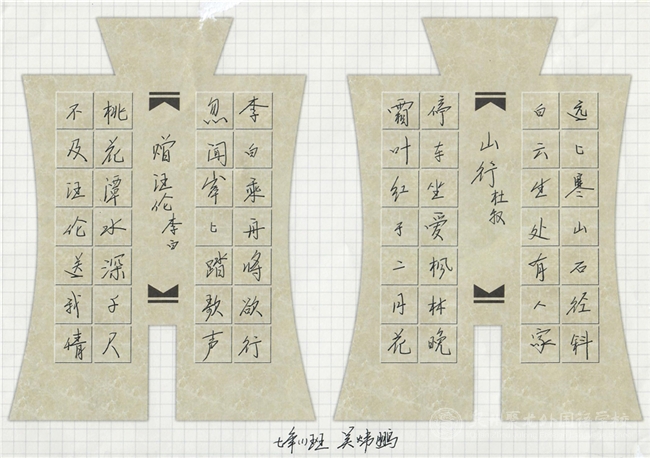 远上寒山石径斜
白云生处有人家
山行
杜牧
停车坐爱枫林晚
霜叶红于二月花
李白乘舟将欲行
忽闻岸上踏歌声
赠汪伦
李白
桃花潭水深千尺
不及汪伦送我情
七年(1)班 吴炜鹏
外国语学校